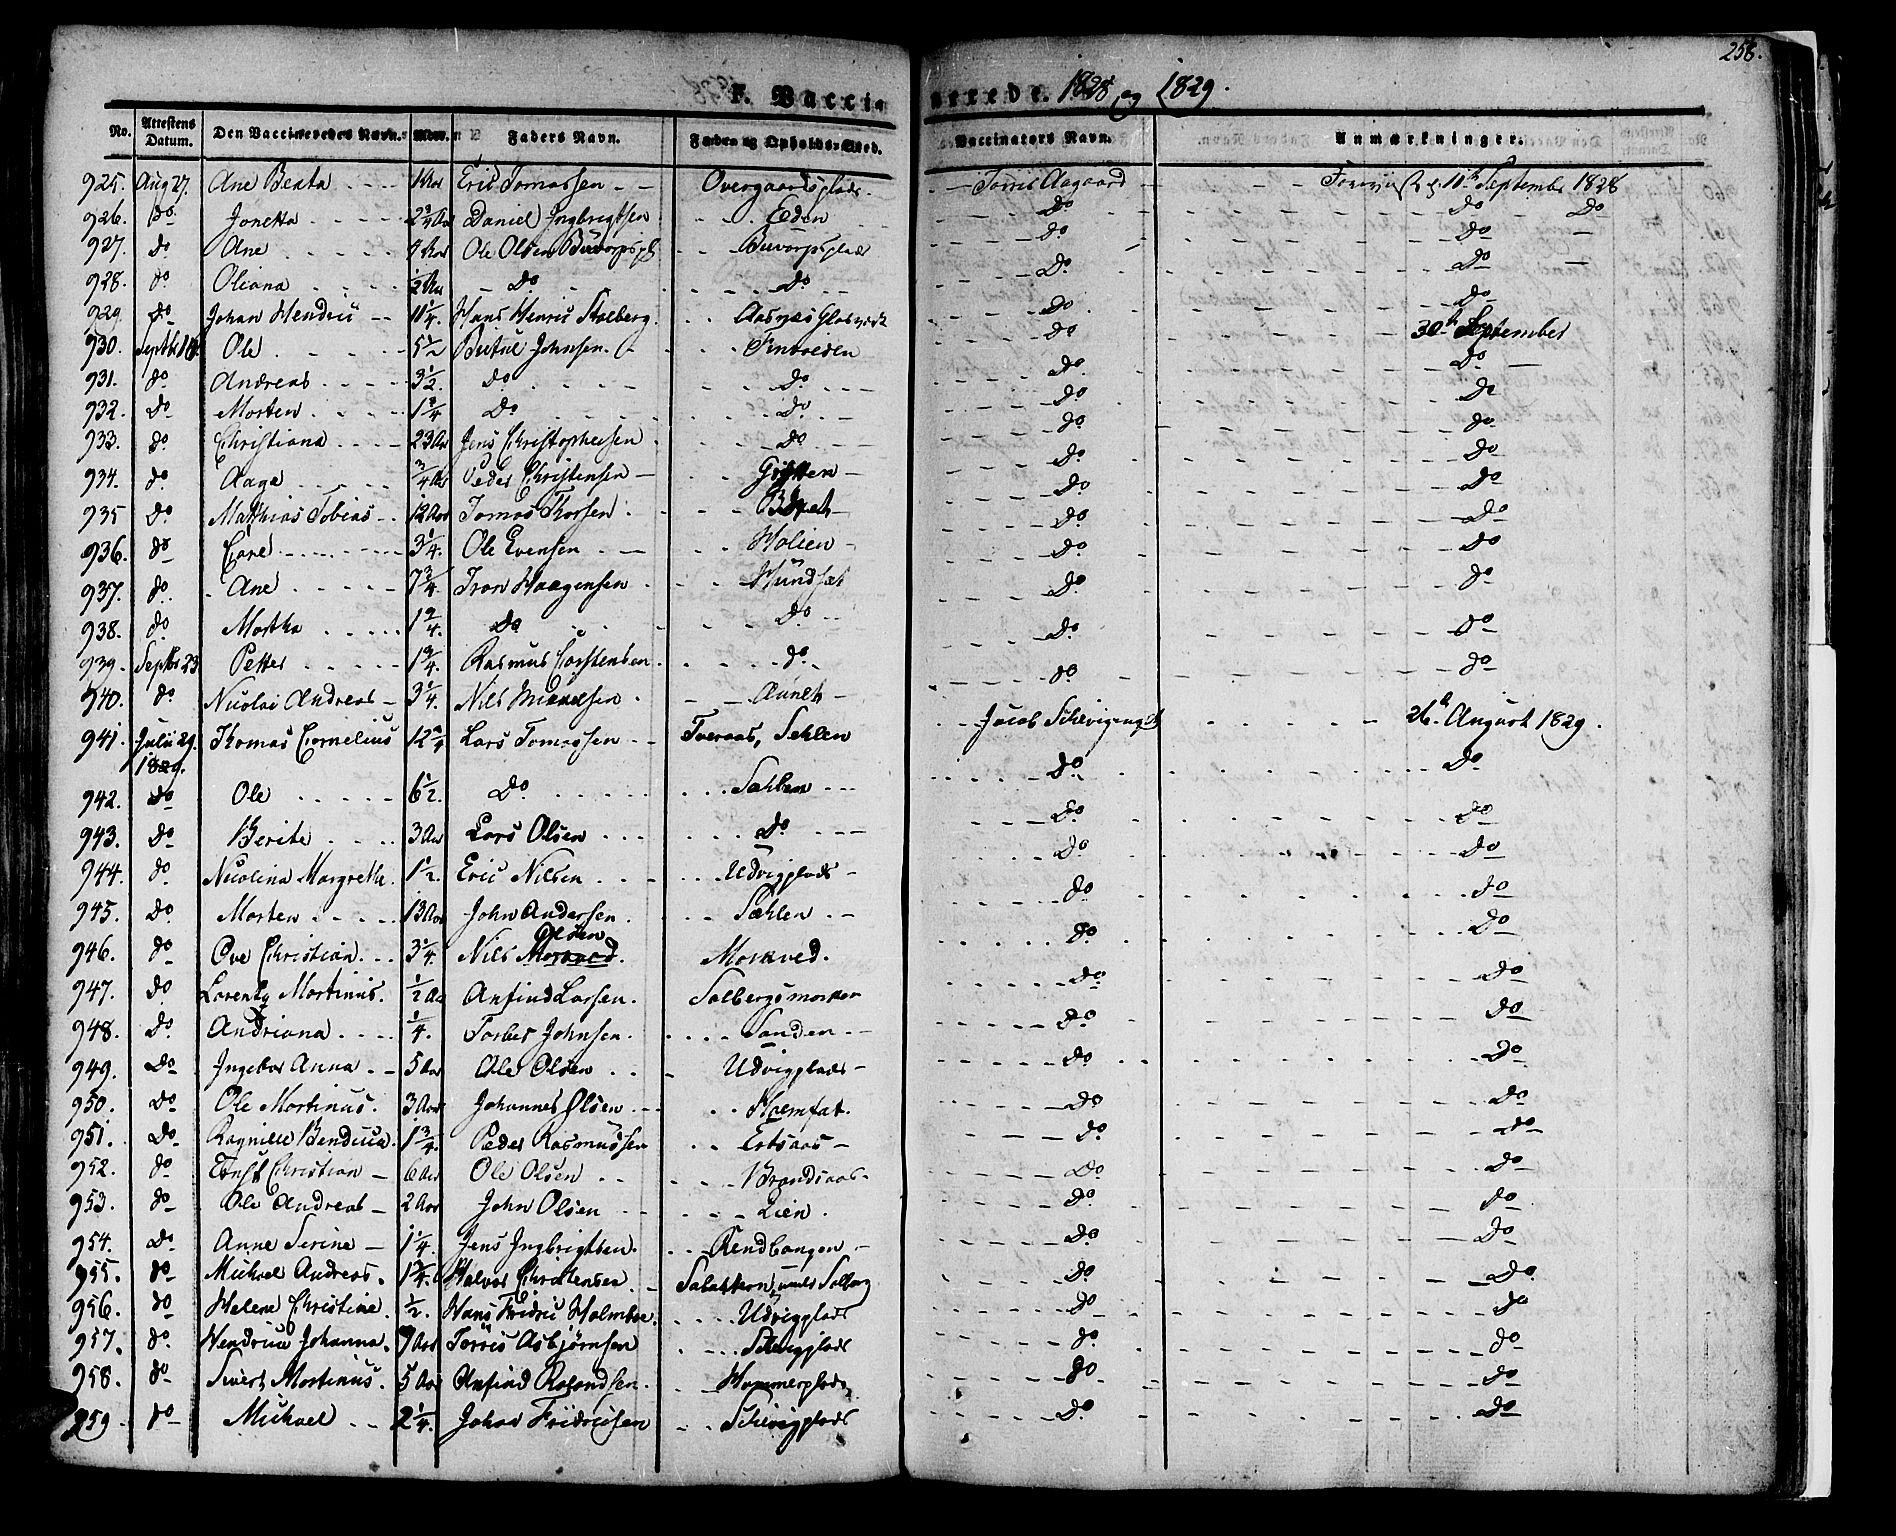 258.
F. Vaccinerede. 1828 og 1829.
No. Attestens Datum. Den Vaccineredes Navn. Alder. Faders Navn. Føde- og Opholds-Sted. Vaccinators Navn. Anmærkninger.
925. Aug 27. Ane Beata 1 Aar Eric Tomassen Overgaardsplads Torris Aagaard 11th September 1828
926. do Jonetta 2 3/4 Aar Daniel Ingbrigtsen Eden Do Do Do
927. do Ane 4 Aar Ole Olsen Buvorpspl Buvorpsplads Do Do
928. do Oliana 1/2 Aar Do Do Do Do
929. do Johan Hendric 11 1/4. Hans Henric Stolberg. Aasnæs Glasværk Do Do
930. Septbr 16 Ole 5 1/2 Bertil Johnsen Do 30th September
931. do Andreas 3 1/2. do Do Do Do
932. Do Morten 1 3/4 Do Do Do Do
933. do Christiana 23 Aar Jens Christophersen Do Do Do
934. do Aage 3/4 Aar Peder Christensen Do Do
935 Do Matthias Tobias 12 Aar Tomas Thorsen Do Do
936. do Cone 3 1/4. Ole Evensen Holien Do Do
937. do. Ane 7 3/4. Iron Haagensen Hundsæt Do do
938. do Martha 1 2/4. Do Do Do Do
939. Septbr 23 Petter 1 2/4. Rasmus Torstensen do Do do
940. do Nicolai Andreas 3 1/4. Nils Mickelsen Aunet do
941. Julii 29. 1829. Thomas Cornelius 12 2/4 Lars Tomassen Tveraas, Sehlen Jacob Schevigengst 26th August 1829.
942. do Ole 6 1/2. Do Sahlen Do Do
943. do Berite 3 Aar Lars Olsen Do Do Do
944. do Nicolina Margrethe. 1 1/2. Eric Nilsen Udvigplads Do Do
945. Do Morten 13 Aar John Andersen Sæhlen do do
946. do Ove Christian 3 1/4. Nils Olsen Morkved. Do Do
947. do Lorents Mortinus. 1/2 Aar Anfind Larsen. Solbergsmarken Do Do
948. do Andriana 1/4. Torber Johnsen. Sanden Do Do
949. Do Ingebor Anna 5 Aar Ole Olsen Udvigplads Do Do
950. Do Ole Mortinus. 3 Aar Johannes Olsen Do Do
951. Do Ragnille Bendicca. 1 3/4. Peder Rasmussen Ertsaas Do Do
952. do Ernst Christian 6 Aar Ole Olsen Brandsaas Do Do
953. do Ole Andreas 2 Aar John Olsen Lien. Do do
954. Do Anne Serine 1 1/4. Jens Ingbrigtsen. Rendbangen Do Do
955. do Michael Andreas. Halvor Christensen Do Do
956. do Helena Christine 1/2. Hans Fridric Holmboe. Udvigplads do do
957. do. Hendricca Johanna. 9 Aar Torris Asbjørnsen Schevigplads do do
958. do Sivert Mortinus. 5 Aar Anfind Rolandsen. Hammerplads do Do
959. do Michael 2 1/4. Johan Fridricsen Schevigplads Do Do